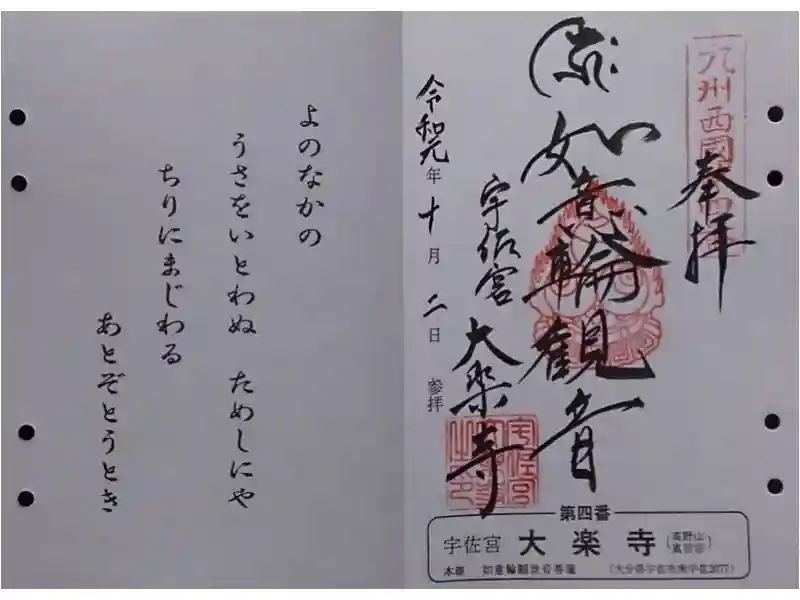 九州西國
奉拝
如意輪観音
宇佐宮
大楽寺
令和元年十月二日 参拝
第四番
宇佐宮 大楽寺 (高野山真言宗)
本尊 如意輪観世音菩薩 (大分県宇佐市南宇佐2077)
よのなかの
うさをいとわぬ ためしにや
ちりにまじわる
あとぞとうとき